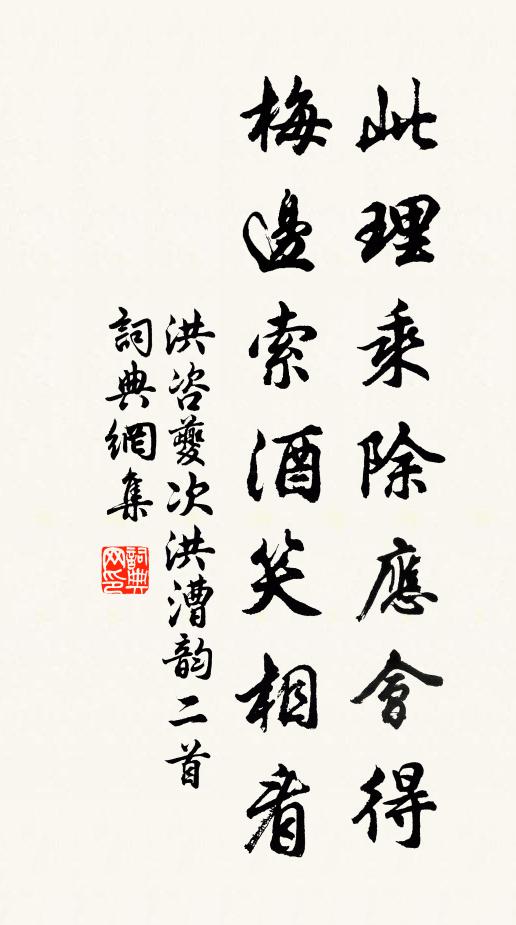 此理乘除應會得
梅邊索酒笑相看
洪咨夔次洪漕韵二首
詞典網集
詞典网印